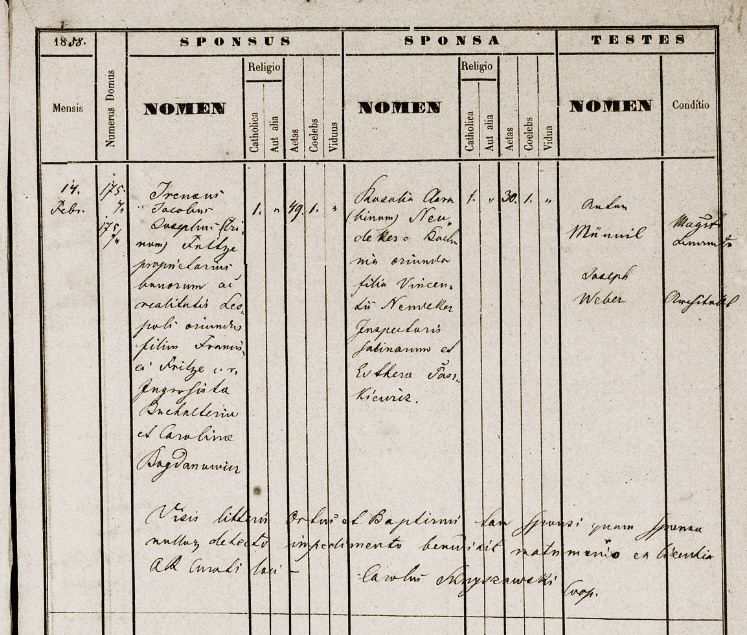 1858.
SPONSUS
SPONSA
TESTES
Mensis
Numerus Domus
NOMEN
Religio
Catholica
Aut alia
Aetas
Coelebs
Viduus
NOMEN
Religio
Catholica
Aut alia
Aetas
Coelebs
Vidua
NOMEN
Conditio
14.
Febr.
175.
175/
Irenaeus
Jacobus
Josephus (tri
num) Fritze
proprietarius
bonorum ac
realitatis Leo
poli oriundus
filius Francis
ci Fritze c. r.
Ingrosista
Buchalteriae
et Carolinae
Bogdanowicz
1. " 49. 1. "
Rosalia Clara
(binum) Neu
deker e Bochnia
oriunda
filia Vincen
tii Neudeker
Inspectoris
Salinarum et
Esthera
1. " 30. 1. "
Joseph
Weber
Visis litteris Ortus et Baptismi tam Sponsi quam Sponsae
nulloq detecto impedimento benedixit matrimonio ex licentia
AR Curati loci -
Carolus
Coop.